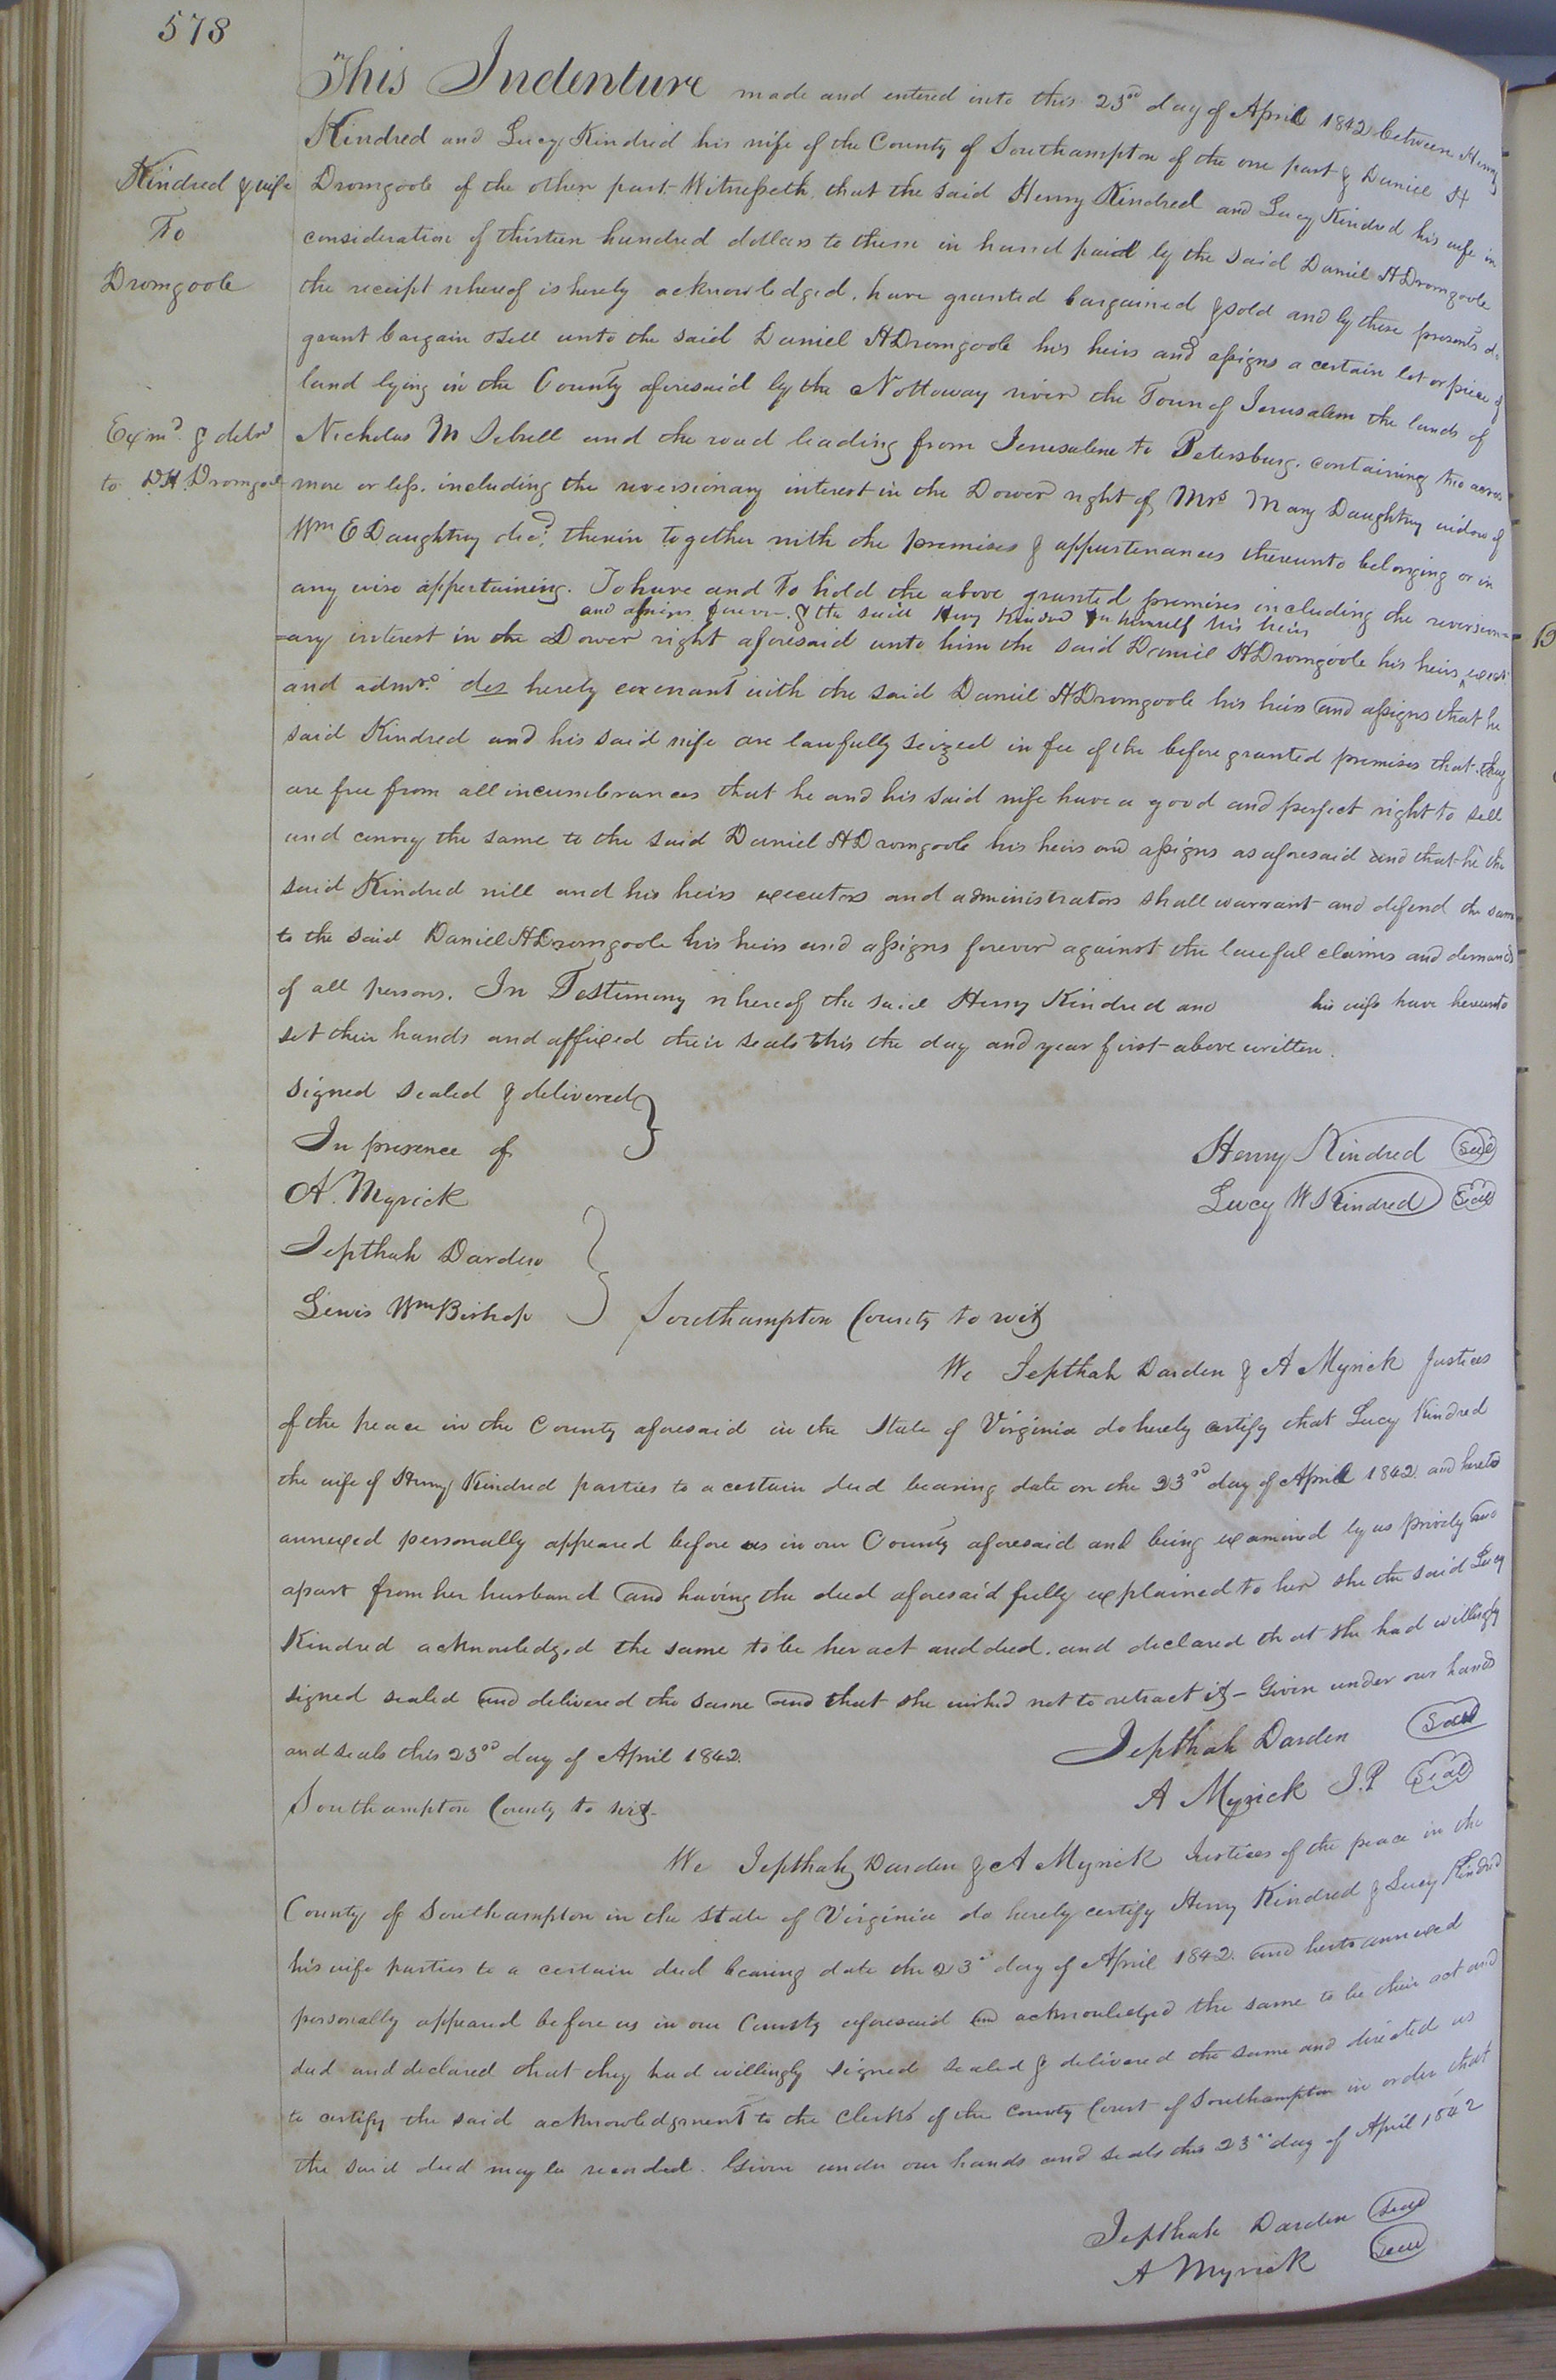 578
This Indenture made and entered into this 23rd day of April 1842 between Henry
Kindred and Lucy Kindred his wife of the County of Southampton of the one part & Daniel H
Kindred & wife
To
Dromgoole
Dromgoole of the other part Witnesseth that the said Henry Kindred and Lucy Kindred his wife in
consideration of thirteen hundred dollars to them in hand paid by the said Daniel H Dromgoole
the receipt whereof is hereby acknowledged, have granted bargained & sold and by these presents do
grant bargain & sell unto the said Daniel H Dromgoole his heirs and assigns a certain lot or piece of
land lying in the County aforesaid by the Nottoway river the Town of Jerusalem the lands of
Exmd. & delvd
to D.H. Dromgoole
Nicholas M Sebrell and the road leading from Jerusalem to Petersburg, containing two acres
more or less, including the reversionary interest in the Dower right of Mrs Mary Daughtry widow of
Wm E Daughtry decd. therein together with the premises & appurtenances thereunto belonging or in
any wise appertaining. To have and To hold the above granted premises including the reversion=
and assigns forever & the said Henry Kindred for himself his heirs
=ary interest in the Dower right aforesaid unto him the said Daniel H Dromgoole his heirs ^ exors
and admrs. does hereby covenant with the said Daniel H Dromgoole his heirs and assigns that he
said Kindred and his said wife are lawfully seized in fee of the before granted premises that they
are free from all incumbrances that he and his said wife have a good and perfect right to sell
and convey the same to the said Daniel H Dromgoole his heirs and assigns as aforesaid and that he the
said Kindred will and his heirs executors and administrators shall warrant and defend the same
to the said Daniel H Dromgoole his heirs and assigns forever against the lawful claims and demands
of all persons. In Testimony whereof the said Henry Kindred and his wife have hereunto
set their hands and affixed their seals this the day and year first above written.
signed sealed & delivered
In presence of
A. Myrick
Jepthah Darden
Lewis Wm Bishop
Henry Kindred Seal
Lucy W Kindred Seal
Southampton County to wit
We Jepthah Darden & A Myrick Justices
of the peace in the County aforesaid in the State of Virginia do hereby certify that Lucy Kindred
the wife of Henry Kindred parties to a certain deed bearing date on the 23rd day of April 1842. and hereto
annexed personally appeared before us in our County aforesaid and being examined by us privily and
apart from her husband and having the deed aforesaid fully explained to her she the said Lucy
Kindred acknowledged the same to be her act and deed. and declared that she had willingly
signed sealed and delivered the same and that she wished not to retract it – Given under our hands
and seals this 23rd day of April 1842.
Jepthah Darden Seal
A Myrick J.P Seal
Southampton County to wit.
We Jepthah Darden & A Myrick Justices of the peace in the
County of Southampton in the State of Virginia do hereby certify Henry Kindred & Lucy Kindred
his wife parties to a certain deed bearing date the 23rd day of April 1842. and hereto annexed
personally appeared before us in our County aforesaid and acknowledged the same to be their act and
deed and declared that they had willingly signed sealed & delivered the same and directed us
to certify the said acknowledgment to the Clerks of the County Court of Southampton in order that
the said deed may be recorded. Given under our hands and seals this 23rd day of April 1842
Jepthah Darden Seal
A Myrick Seal